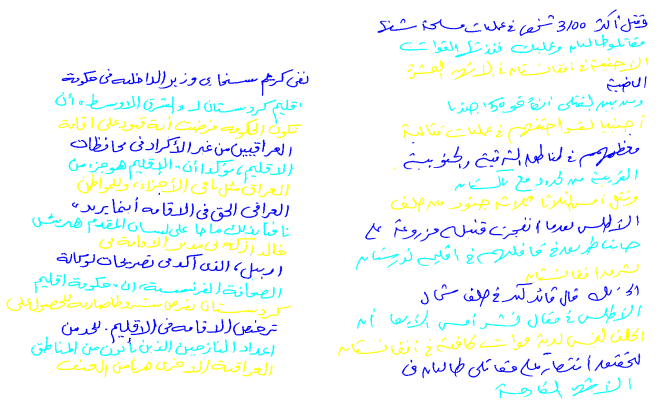 وقتل أكثر 3100 شخص في عمليات مسلحة شنها
مقاتلو طالبان وعمليات نفذتها القوات
الأجنبية في أفغانستان في الأشهر العشرة
الماضية
ومن بين القتلى أكثر من
أجنبيا لقوا حتفهم في عمليات قتالية
معظمهم في المناطق الشرقية والجنوبية
القريبة من الحدود مع باكستان
وقتل أمس الثلاثاء ثلاثة جنود من حلف
الأطلسي بعدما انفجرت قنبلة مزروعة على
جانب طريق في قافلتهم في اقليم نورستان
بشرق أفغانستان
إلى ذلك قال قائد كبير في حلف شمال
الأطلسي في مقال نشر أمس الأربعاء أن
الحلف ليس لديه قوات كافية في أفغانستان
لتحقيق انتصار على مقاتلي طالبان في
الأشهر القادمة
نفى كريم سنجاري وزير الداخلية في حكومة
اقليم كردستان لـ والشرق الاوسط، أن
تكون الحكومة فرضت أية قيود على اقامة
العراقيين من غير الأكراد في محافظات
الاقليم، مؤكدا أن - الإقليم هو جزء من
العراق مثل باقي الأجزاء، والمواطن
العراقي الحق في الاقامة أينما يريد،،
نافيا بذلك ما جاء على لسان المقدم هيرش
خالد أركه يي مدير الاقامة في
اربيل، الذي أكد في تصريحات لوكالة
الصحافة الفرنسية، ان - حكومة اقليم
كردستان تفرض شروطا صارمة للحصول على
ترخيص الاقامة في الاقليم. للحد من
اعداد النازحين الذين يأتون من المناطق
العراقية الاخرى هربا من العنف